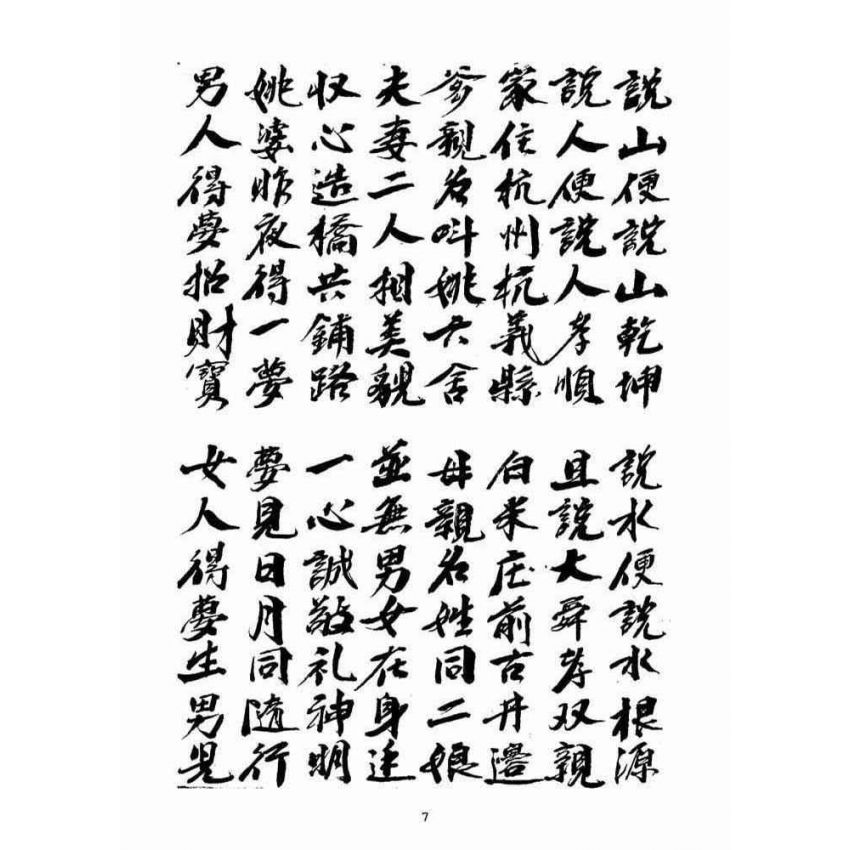 說山便說山乾坤
說水便說水根源
說人便說人孝順
且說大舜孝双親
家住杭州杭義縣
白米庄前古井邊
爹親名呌姚六舍
母親名姓同二娘
夫妻二人相美貌
並無男女在身边
収心造橋共鋪路
一心誠敬礼神明
姚婆昨夜得一夢
夢見日月同隨行
男人得夢招財寶
女人得夢生男兒
7